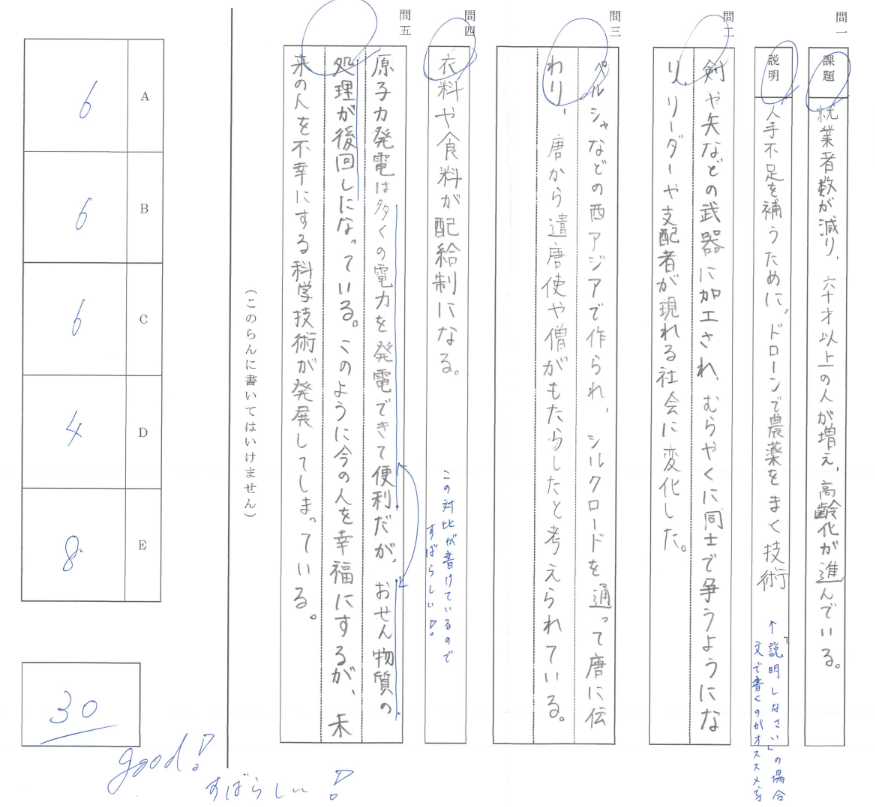 問一
課題
就業者数が減り、六十才以上の人が増え、高齢化が進んでいる。
説明
人手不足を補うために、ドローンで農薬をまく技術
↑「説明しなさい」の場合
文で書くのがオススメです
問二
剣や矢などの武器に加工され、むらやくに同士で争うようにな
り、リーダーや支配者が現れる社会に変化した。
問三
ペルシャなどの西アジアで作られ、シルクロードを通って唐に伝
わり、唐から遣唐使や僧がもたらしたと考えられている。
問四
衣料や食料が配給制になる。
この対比が書けているので
すばらしい!!
問五
原子力発電は多くの電力を発電できて便利だが、おせん物質の
処理が後回しになっている。このように今の人を幸福にするが、未
来の人を不幸にする科学技術が発展してしまっている。
(このらんに書いてはいけません)
A
6
B
6
C
6
D
4
E
8
30
good!
すばらしい!